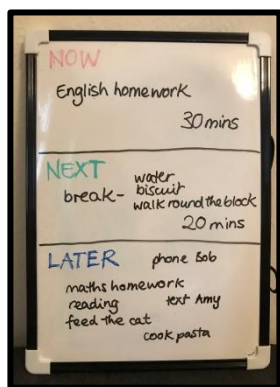 NOW
English homework
30 mins
NEXT
water
break- biscuit
walk round the block
20 mins
LATER phone Bob
maths homework
reading text Amy
feed the cat
cook pasta